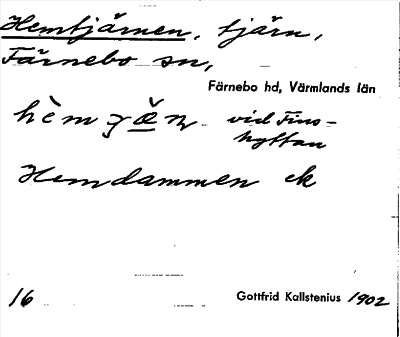 Hemtjärnen, tjärn,
Färnebo sn,
Färnebo hd, Värmlands län
vid Fins-
hyttan
Hemdammen ek
16 Gottfrid Kallstenius 1902